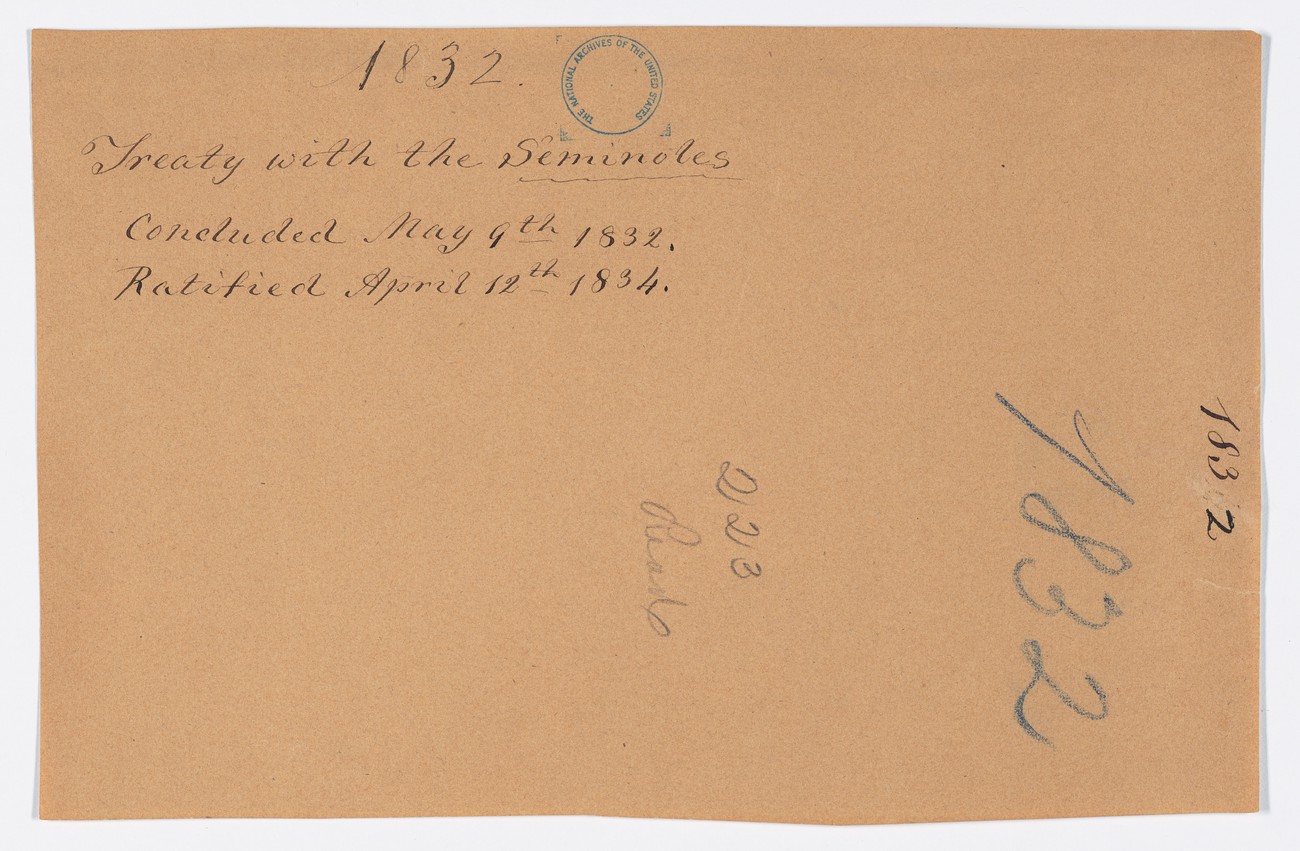 1832.
THE NATIONAL ARCHIVES OF THE UNITED STATES
Treaty with the Seminoles
Concluded May 9th 1832.
Ratified April 12th 1834.
1832
1832
223